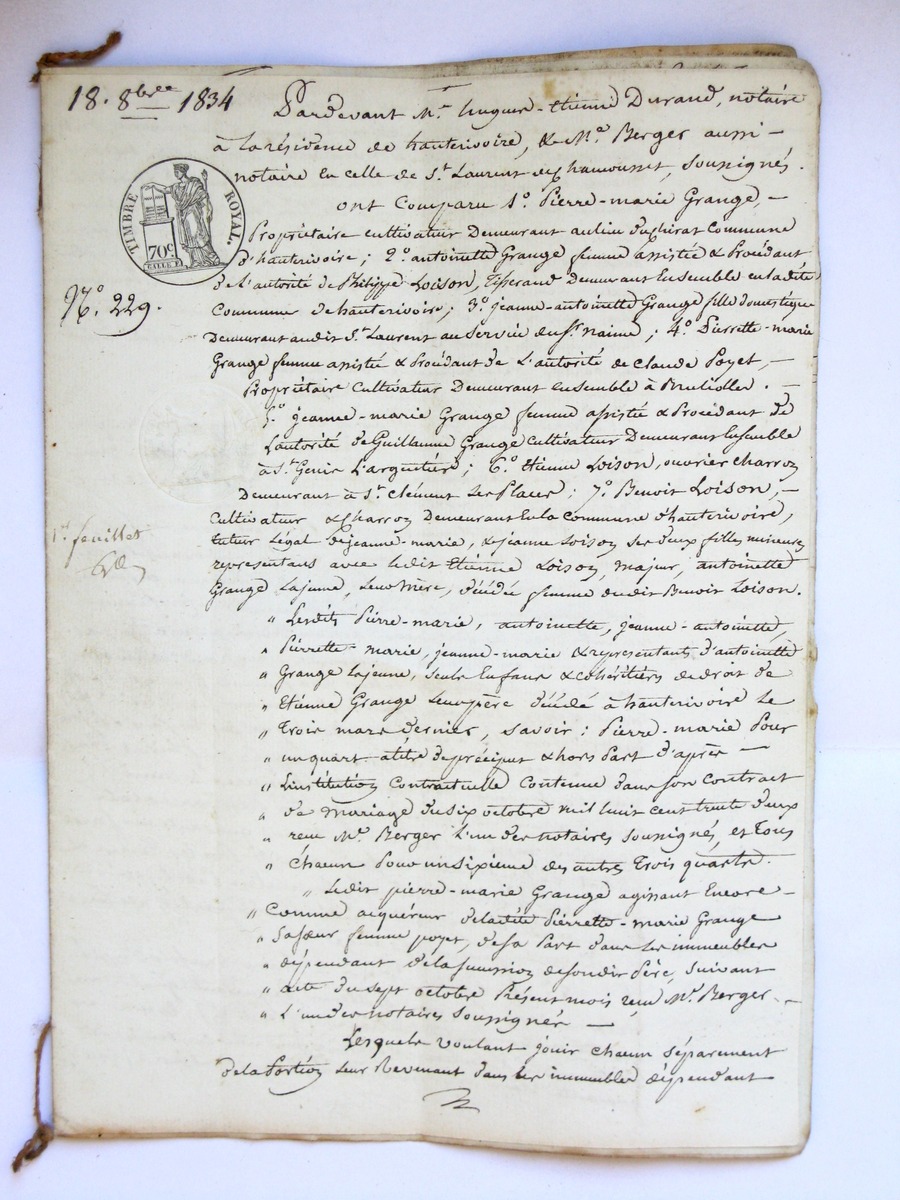 18. 8bre 1834
Pardevant Me hugues-etienne Durand, notaire
à la résidence de hauterivoire, & Me Berger aussi
notaire en celle de St Laurent de Chamousset, soussignés.
TIMBRE ROYAL.
70c
N.o 229.
ont Comparu 1.o Pierre-marie Grange,
Propriétaire cultivateur Demeurant au lieu commune
d'hauterivoire; 2.o antoinette Grange femme assistée & Procédant
de L'autorité de Philippe Loison, tisserand Demeurant Ensemble en la dite
Commune de hauterivoire; 3.o jeanne-antoinette Grange fille domestique
Demeurant audit St Laurent au Service du Sr ; 4.o Pierrette-marie
Grange femme assistée & Procédant de L'autorité de Claude Poyet,
Propriétaire Cultivateur Demeurant ensemble à Bruliolles.
5.o jeanne-marie Grange femme assistée & Procédant de
L'autorité de Guillaume Grange Cultivateur Demeurant Ensemble
à St Genis L'argentière; 6.o Etienne Loison, ouvrier charron
Demeurant à St Clément les Places; 7.o Benoit Loison,
Cultivateur & Charron Demeurant En la commune d'hauterivoire,
tuteur Légal de jeanne-marie, & jeanne Loison ses deux filles mineures
1er feuillet
représentans avec ledit Etienne Loison, majeur, antoinette
Grange Lajeune, leur Mère, décédée femme dudit Benoit Loison.
" Lesdits Pierre-marie, antoinette, jeanne-antoinette,
" Pierrette-marie, jeanne-marie & représentants d'antoinette
" Grange Lajeune, Seuls Enfans & cohéritiers de droit de
" Etienne Grange leur père décédé à hauterivoire le
" Trois mars dernier, savoir: Pierre-marie Pour
" un quart à titre de préciput & hors Part d'après
" L'institution Contractuelle Contenue dans son Contract
" de Mariage du six octobre mil huit cent trente deux
" reçu Me Berger l'un des notaires soussignés, et Tous
" Chacun Pour un sixieme des autres Trois quarts.
" Ledit pierre-marie Grange agissant Encore
" Comme acquéreur de la dite Pierrette-marie Grange
" Sa sœur femme poyet, de sa Part dans les immeubles
" dépendant de la succession de sondit Père, Suivant
" acte du sept octobre Présent mois reçu Me Berger
" L'un des notaires Soussignés
Lesquels voulant jouir chacun séparement
de la Portion leur Revenant dans les immeubles dépendant